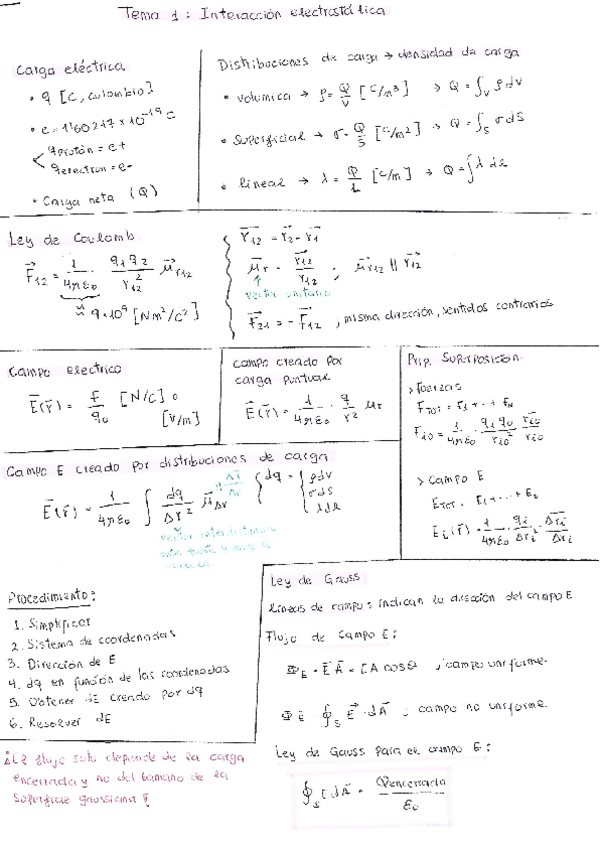 Tema 1: Interacción electrostática
Carga eléctrica
• q [C, culombio]
• e = 1'60217 × 10⁻¹⁹ C
qprotón = e+
qelectron = e-
• Carga neta (Q)
Distribuciones de carga → densidad de carga
• volumica → ρ = Q/V [C/m³] → Q = ∫_V ρ dV
• superficial → σ = Q/S [C/m²] → Q = ∫_S σ dS
• lineal → λ = Q/L [C/m] → Q = ∫ λ dl
Ley de Coulomb
F⃗₁₂ = 1/4πε₀ · q₁q₂/r₁₂² μ⃗r₁₂
≈ 9·10⁹ [Nm²/C²]
r⃗₁₂ = r⃗₂ - r⃗₁
μ⃗r = r⃗₁₂/r₁₂ ; μ⃗r₁₂ || r⃗₁₂
vector unitario
F⃗₂₁ = - F⃗₁₂ , misma dirección, sentidos contrarios
Campo electrico
E⃗(r⃗) = F/q₀ [N/C] o
[V/m]
Campo creado por
carga puntual
E⃗(r⃗) = 1/4πε₀ · q/r² μr
Prip. Superposición
> Fuerzas
F_TOT = F₁ + ··· + F_N
F_i0 = 1/4πε₀ · q_i q₀/r_i0² · r⃗_i0/r_i0
> Campo E
E_TOT = E₁ + ··· + E₂
E_i(r⃗) = 1/4πε₀ · q_i/Δr_i · Δr⃗_i/Δr_i
Campo E creado por distribuciones de carga
E⃗(r⃗) = 1/4πε₀ ∫ dq/Δr² μ⃗Δr
Δr⃗/Δr
dq = { ρdV
σdS
λdl
vector
Procedimiento:
1. Simplificar
2. Sistema de coordenadas
3. Dirección de E
4. dq en función de las coordenadas
5. Obtener dE creado por dq
6. Resolver dE
¡El flujo solo depende de la carga
encerrada y no del tamaño de la
superficie gaussiana!
Ley de Gauss
Líneas de campo: indican la dirección del campo E
Flujo de Campo E:
Φ_E = E⃗ A⃗ = E A cosθ ; campo uniforme.
Φ_E = ∮_S E⃗ · dA⃗ ; campo no uniforme.
Ley de Gauss para el campo E:
∮_S E dA⃗ = Qencerrada/ε₀